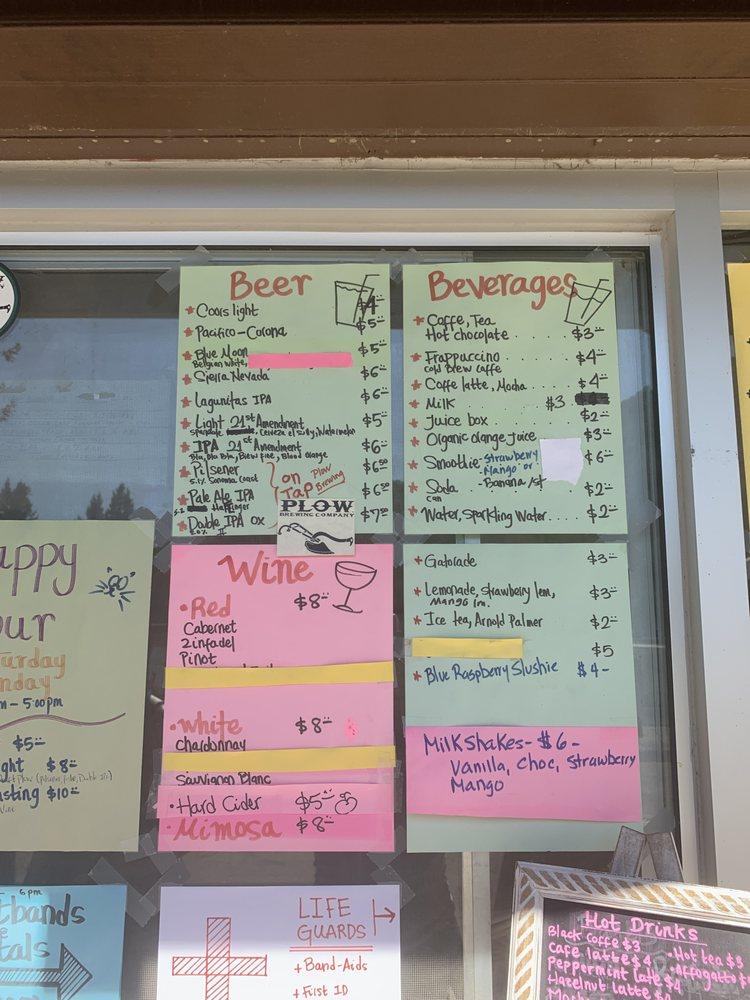 Beer
Coors light $4
Pacifico-Corona $5
Blue Moon $5
Belgian white,
Sierra Nevada $6
Lagunitas IPA $6
Light 21st Amendment $5
Watermelon
IPA 21st Amendment $6
Bla, Bla Bla, Brew Free, Blood Orange
Pilsener $6.50
5.1% Sonoma Coast
on Tap Plow Brewing
Pale Ale IPA $6.50
Double IPA OX $7.00
PLOW
BREWING COMPANY
Beverages
Coffe, Tea
Hot chocolate $3
Frappuccino $4
cold brew caffe
Caffe latte, Mocha $4
Milk $3
Juice box $2
Organic orange Juice $3
Smoothie- Strawberry $6
Mango or
-Banana/st
Soda $2
can
Water, Sparkling Water $2
Wine
Red $8
Cabernet
Zinfadel
Pinot
White $8
Chardonnay
Sauvignon Blanc
Hard Cider $5
Mimosa $8
Gatorade $3
Lemonade, strawberry lem, $3
Mango lm.
Ice tea, Arnold Palmer $2
$5
Blue Raspberry Slushie $4-
MilKShakes- $6-
Vanilla, Choc, Strawberry
Mango
appy
our
turday
nday
m - 5:00pm
$5
ght $8
sting $10
6 pm
tbands
tals
LIFE
GUARDS
+ Band-Aids
+ First ID
Hot Drinks
Black Coffe $3
Cafe latte $4
Peppermint late $4
Hazelnut latte
Hot tea $3
Affagatto